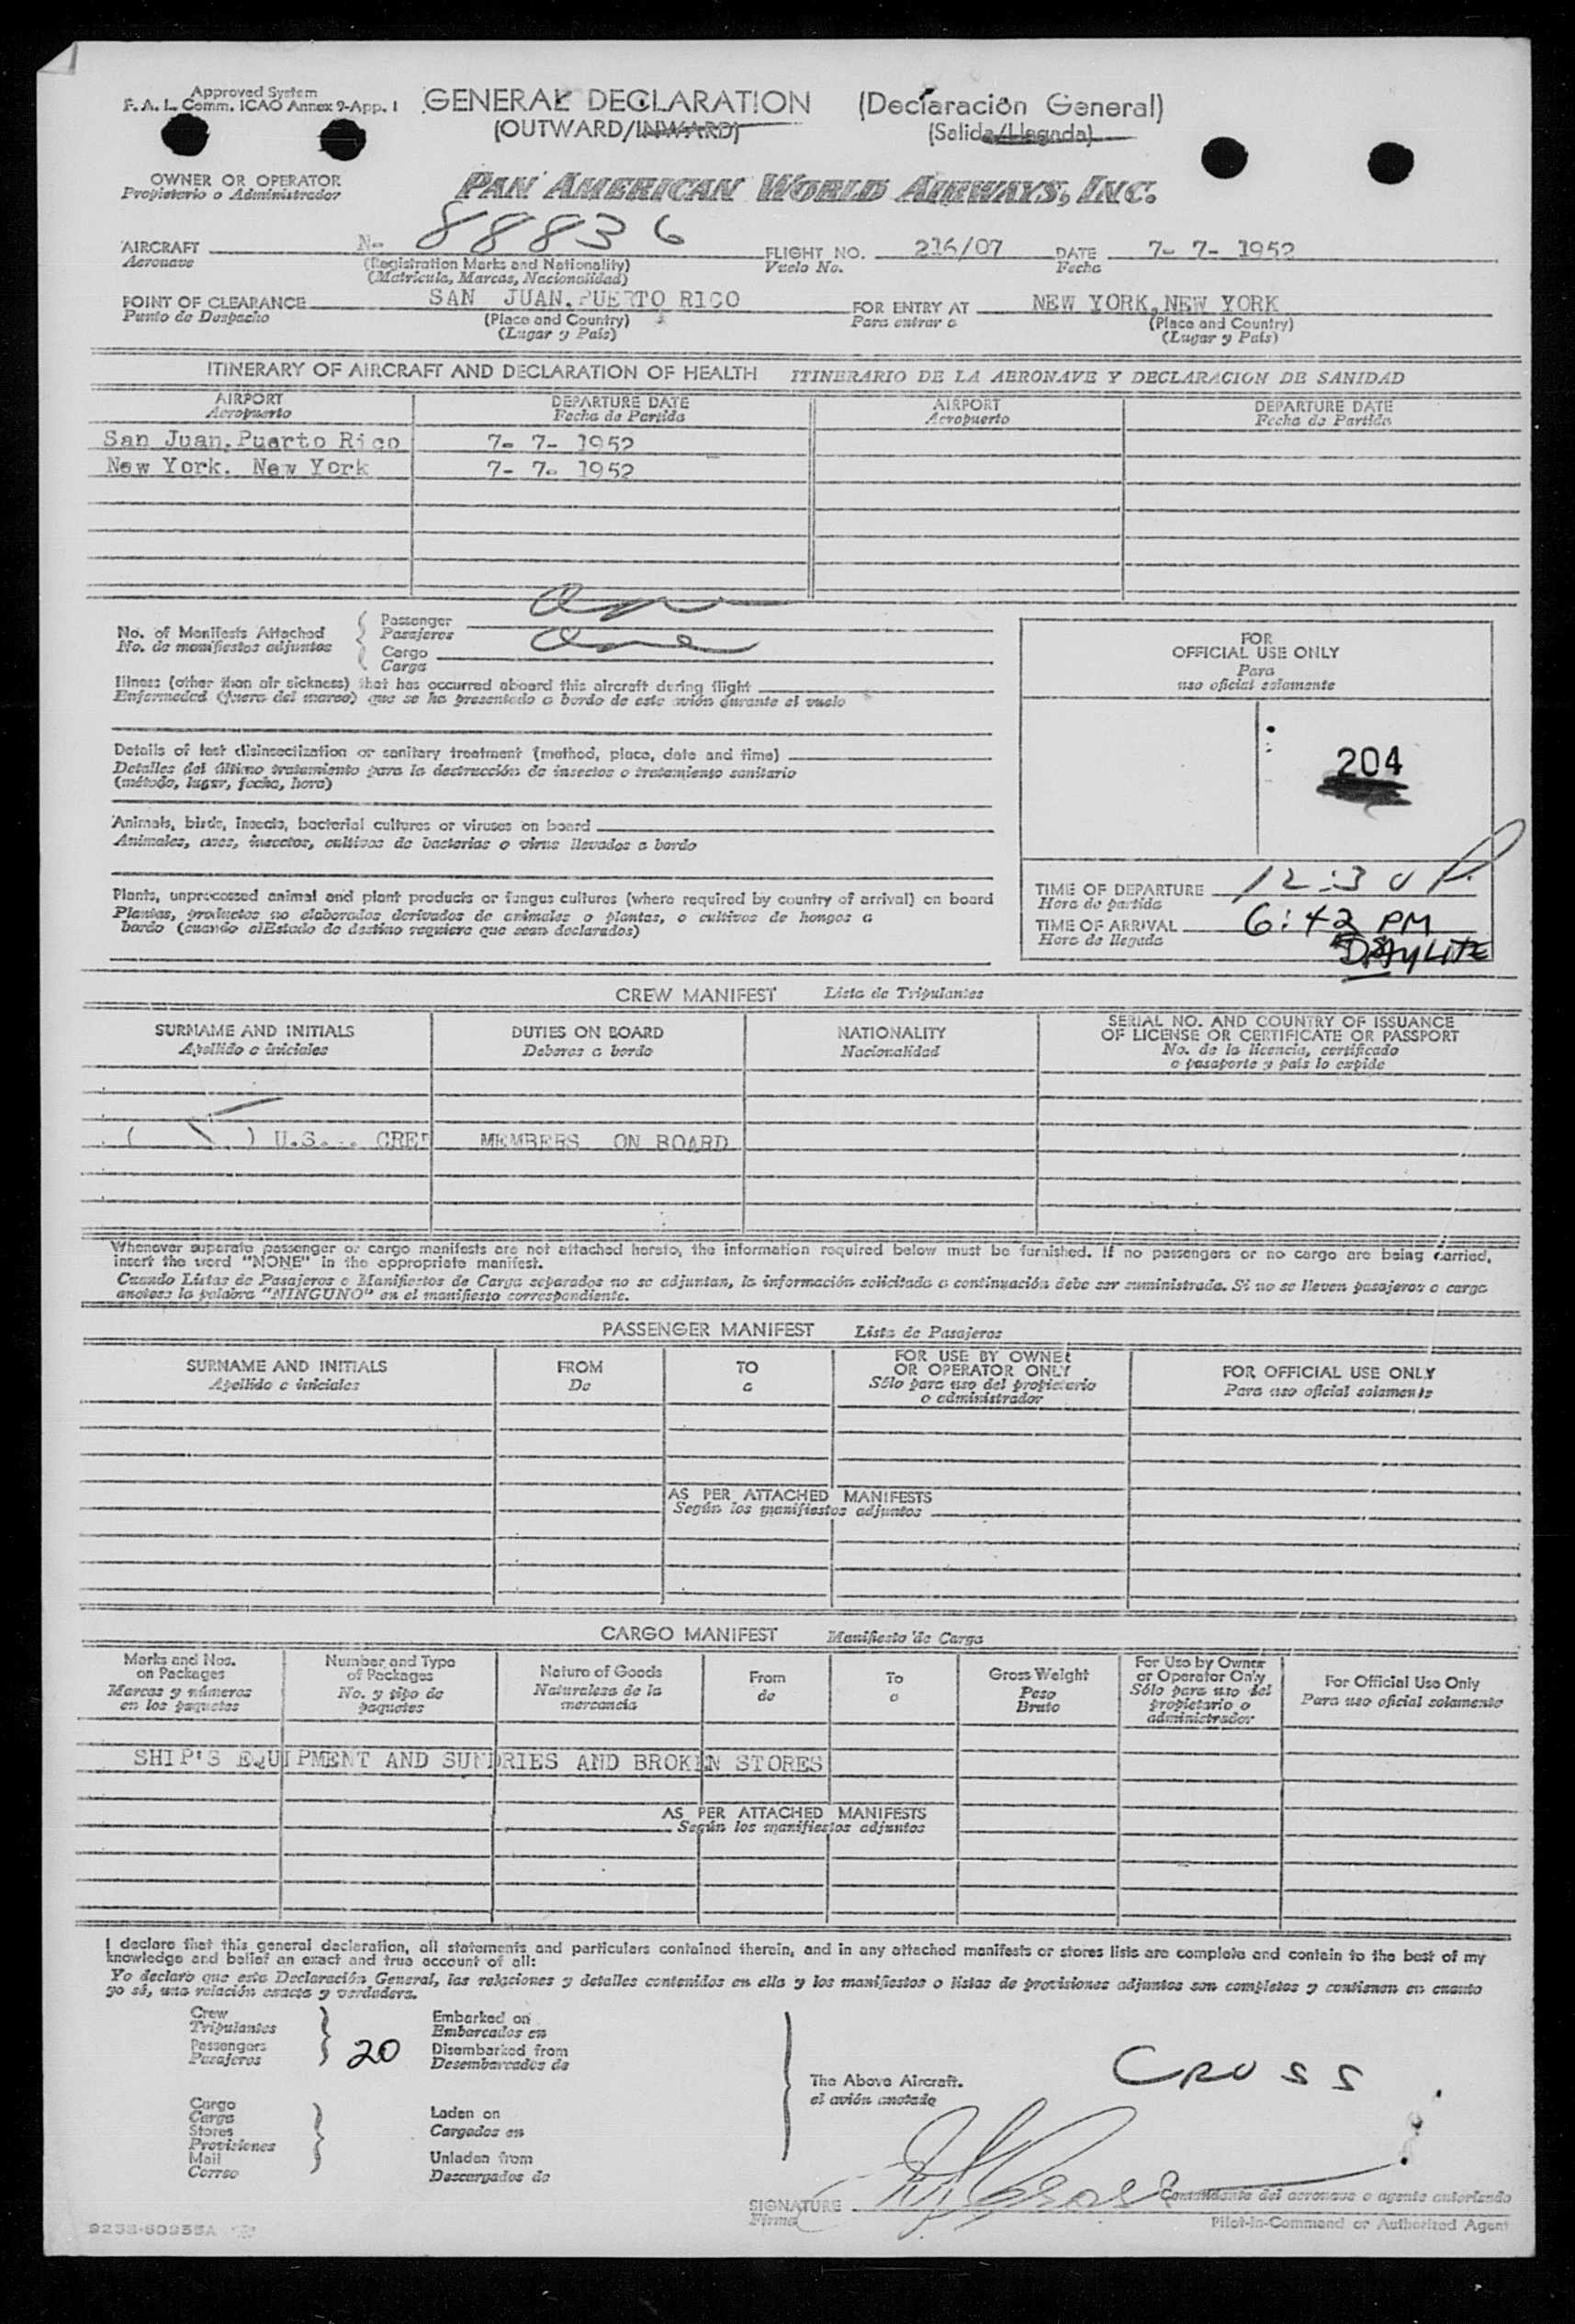 Approved System
F. A. L. Comm. ICAO Annex 9-App. 1
GENERAL DECLARATION (Declaración General)
(OUTWARD/INWARD) (Salida/Llegada)
OWNER OR OPERATOR PAN AMERICAN WORLD AIRWAYS, INC.
Propietario o Administrador
AIRCRAFT N- 88836 FLIGHT NO. 216/07 DATE 7- 7- 1952
Aeronave (Registration Marks and Nationality) Vuelo No. Fecha
(Matricula, Marcas, Nacionalidad)
POINT OF CLEARANCE SAN JUAN, PUERTO RICO FOR ENTRY AT NEW YORK, NEW YORK
Punto de Despacho (Place and Country) Para entrar a (Place and Country)
(Lugar y País) (Lugar y País)
ITINERARY OF AIRCRAFT AND DECLARATION OF HEALTH ITINERARIO DE LA AERONAVE Y DECLARACION DE SANIDAD
AIRPORT DEPARTURE DATE AIRPORT DEPARTURE DATE
Aeropuerto Fecha de Partida Aeropuerto Fecha de Partida
San Juan, Puerto Rico 7- 7- 1952
New York. New York 7- 7- 1952
No. of Manifests Attached Passenger
No. de manifiestos adjuntos Pasajeros One
Cargo
Carga
Illness (other than air sickness) that has occurred aboard this aircraft during flight
Enfermedad (fuera del mareo) que se ha presentado a bordo de este avión durante el vuelo
Details of last disinsectization or sanitary treatment (method, place, date and time)
Detalles del último tratamiento para la destrucción de insectos o tratamiento sanitario
(método, lugar, fecha, hora)
Animals, birds, insects, bacterial cultures or viruses on board
Animales, aves, insectos, cultivos de bacterias o virus llevados a bordo
Plants, unprocessed animal and plant products or fungus cultures (where required by country of arrival) on board
Plantas, productos no elaborados derivados de animales o plantas, o cultivos de hongos a
bordo (cuando el Estado de destino requiera que sean declarados)
FOR
OFFICIAL USE ONLY
Para
uso oficial solamente
204
TIME OF DEPARTURE 12:30 P.
Hora de partida
TIME OF ARRIVAL 6:42 PM
Hora de llegada DAYLITE
CREW MANIFEST Lista de Tripulantes
SURNAME AND INITIALS DUTIES ON BOARD NATIONALITY SERIAL NO. AND COUNTRY OF ISSUANCE
OF LICENSE OR CERTIFICATE OR PASSPORT
Apellido e iniciales Deberes a bordo Nacionalidad No. de la licencia, certificado
o pasaporte y país lo expide
( ) U.S. CREW MEMBERS ON BOARD
Whenever separate passenger or cargo manifests are not attached hereto, the information required below must be furnished. If no passengers or no cargo are being carried,
insert the word "NONE" in the appropriate manifest.
Cuando Listas de Pasajeros o Manifiestos de Carga separados no se adjuntan, la información solicitada a continuación debe ser suministrada. Si no se lleven pasajeros o carga
anotese la palabra "NINGUNO" en el manifiesto correspondiente.
PASSENGER MANIFEST Lista de Pasajeros
SURNAME AND INITIALS FROM TO FOR USE BY OWNER
OR OPERATOR ONLY FOR OFFICIAL USE ONLY
Apellido e iniciales De a Sólo para uso del propietario
o administrador Para uso oficial solamente
AS PER ATTACHED MANIFESTS
Según los manifiestos adjuntos
CARGO MANIFEST Manifiesto de Carga
Marks and Nos. on Packages Number and Type of Packages Nature of Goods From To Gross Weight For Use by Owner or Operator Only For Official Use Only
Marcas y números en los paquetes No. y tipo de paquetes Naturaleza de la mercancia de a Peso Bruto Sólo para uso del propietario o administrador Para uso oficial solamente
SHIP'S EQUIPMENT AND SUNDRIES AND BROKEN STORES
AS PER ATTACHED MANIFESTS
Según los manifiestos adjuntos
I declare that this general declaration, all statements and particulars contained therein, and in any attached manifests or stores lists are complete and contain to the best of my
knowledge and belief an exact and true account of all:
Yo declaro que esta Declaración General, las relaciones y detalles contenidos en ella y los manifiestos o listas de provisiones adjuntos son completos y contienen en cuanto
yo sé, una relación exacta y verdadera.
Crew Embarked on
Tripulantes Embarcados en
Passengers 20 Disembarked from
Pasajeros Desembarcados de
The Above Aircraft. CROSS
el avión anotado
Cargo
Carga Laden on
Stores Cargados en
Provisiones
Mail Unladen from
Correo Descargados de
SIGNATURE Comandante del aeronave o agente autorizado
Firma Pilot-in-Command or Authorized Agent